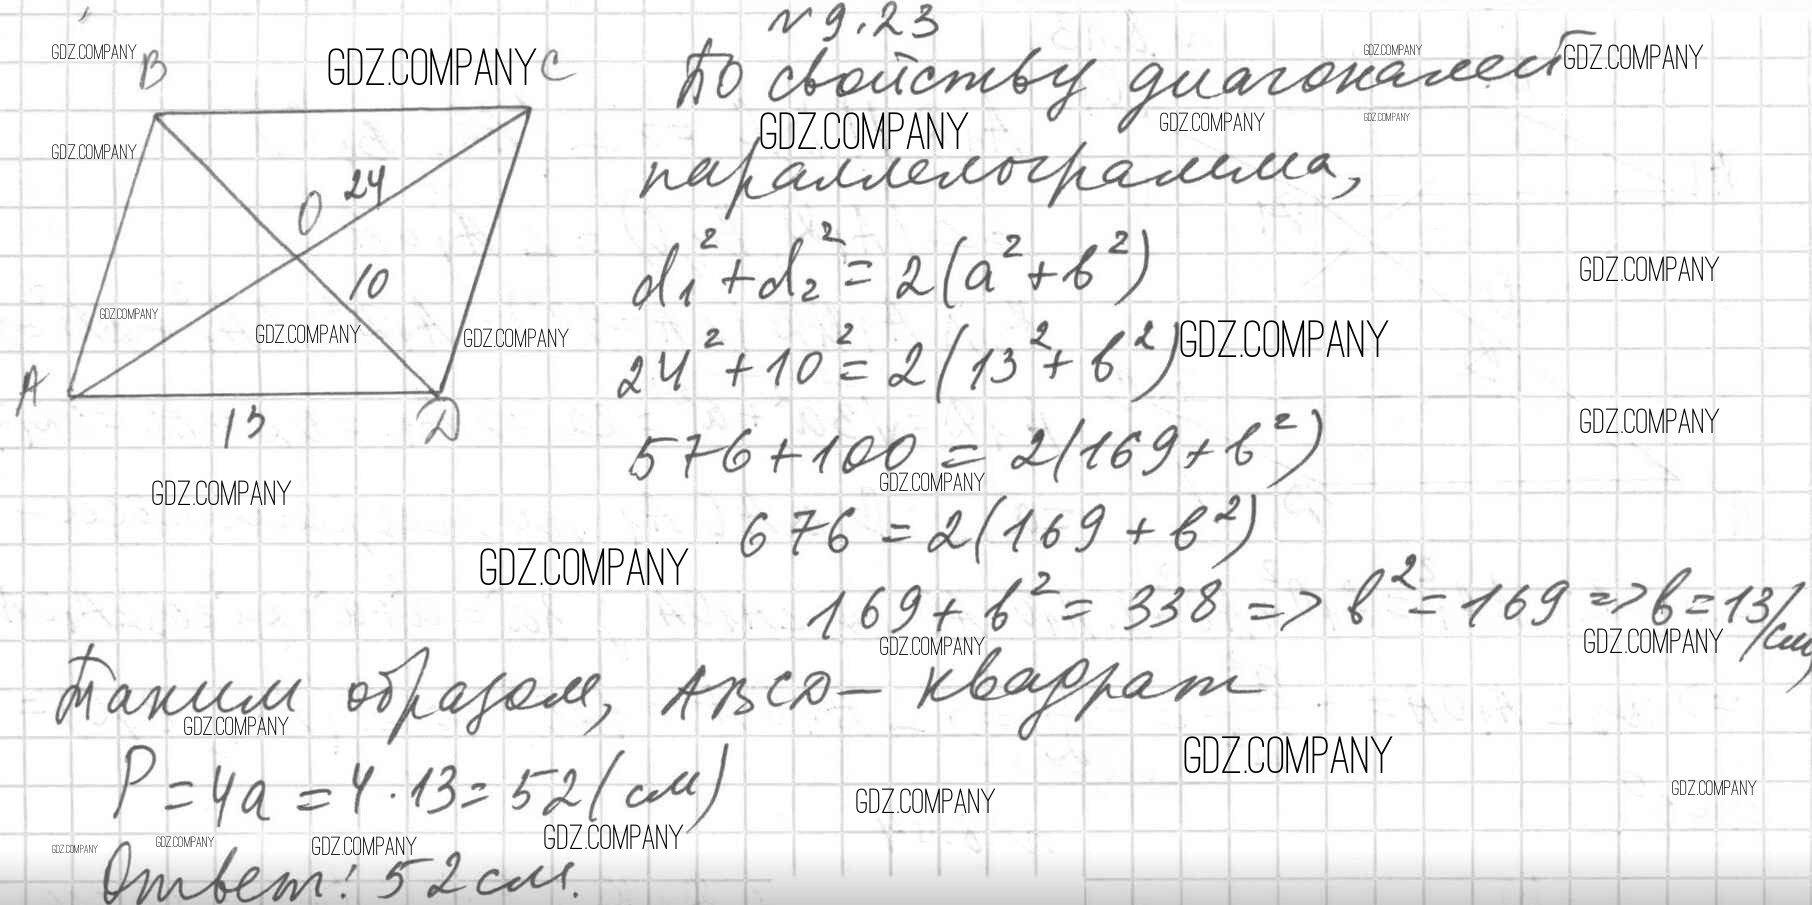 № 9.23
GDZ.COMPANY
B
GDZ.COMPANY
C
По свойству диагоналей
GDZ.COMPANY
GDZ.COMPANY
GDZ.COMPANY
GDZ.COMPANY
GDZ.COMPANY
GDZ.COMPANY
параллелограмма,
24
O
d₁² + d₂² = 2(a² + b²)
GDZ.COMPANY
10
GDZ.COMPANY
GDZ.COMPANY
GDZ.COMPANY
24² + 10² = 2(13² + b²)
GDZ.COMPANY
A
13
D
GDZ.COMPANY
576 + 100 = 2(169 + b²)
GDZ.COMPANY
GDZ.COMPANY
676 = 2(169 + b²)
GDZ.COMPANY
169 + b² = 338 => b² = 169 => b = 13 (см)
GDZ.COMPANY
GDZ.COMPANY
Таким образом, ABCD – квадрат
GDZ.COMPANY
GDZ.COMPANY
P = 4a = 4 · 13 = 52 (см)
GDZ.COMPANY
GDZ.COMPANY
GDZ.COMPANY
GDZ.COMPANY
GDZ.COMPANY
GDZ.COMPANY
Ответ: 52 см.